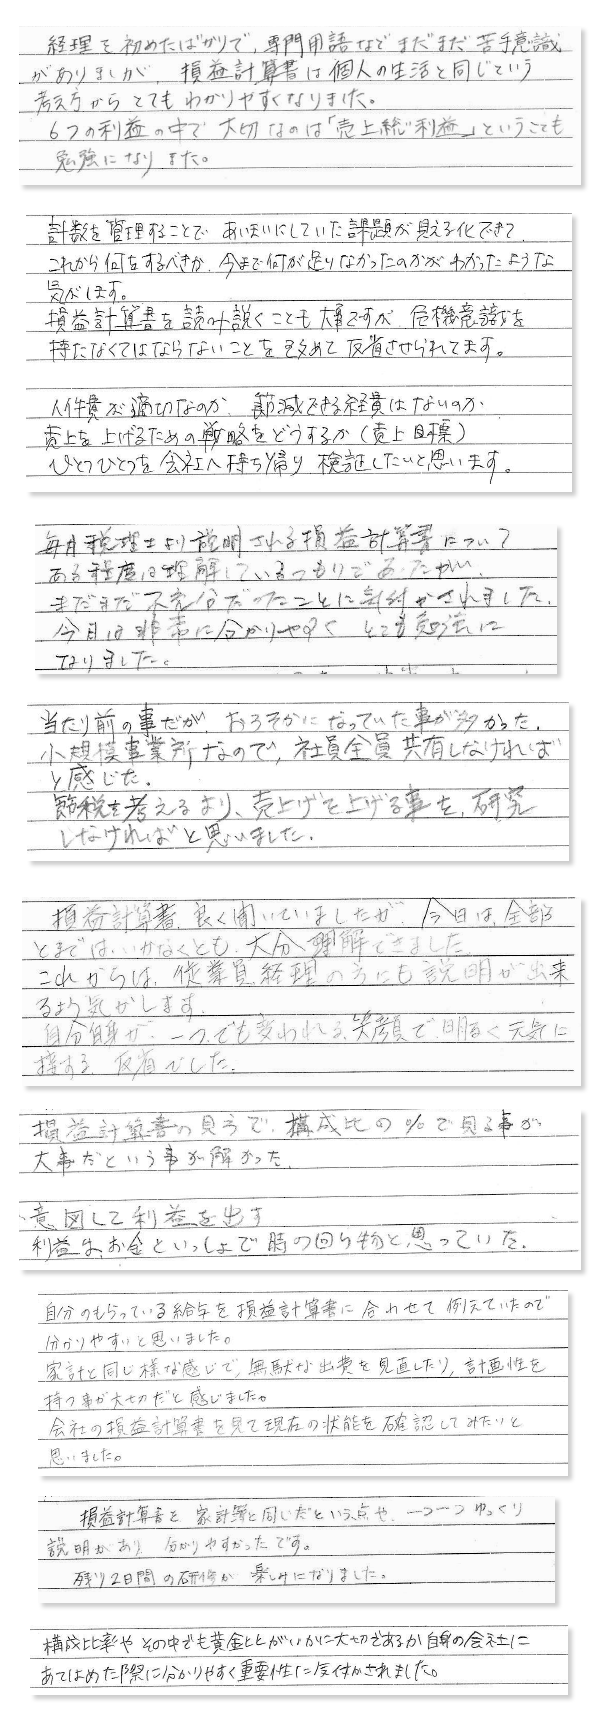 経理を初めたばかりで、専門用語などまだまだ苦手意識
がありましが、損益計算書は個人の生活と同じという
考え方からとてもわかりやすくなりました。
6つの利益の中で大切なのは「売上総利益」ということも
勉強になりました。
計数を管理することであいまいにしていた課題が見える化できて、
これから何をするべきか、今まで何が足りなかったのかがわかったような
気がします。
損益計算書を読み説くことも大事ですが、危機意識を
持たなくてはならないことを改めて反省させられてます。
人件費が適切なのか、節減できる経費はないのか
売上を上げるための戦略をどうするか(売上目標)
ひとつひとつを会社へ持ち帰り検証したいと思います。
毎月税理士より説明される損益計算書について
ある程度は理解しているつもりであったが、
まだまだ不充分だったことに気付かされました。
今月は非常に分かりやすくとても勉強に
なりました。
当たり前の事だが、おろそかになっていた事が多かった。
小規模事業所なので、社員全員共有しなければ
と感じた。
節税を考えるより、売上げを上げる事を、研究
しなければと思いました。
損益計算書、良く聞いていましたが、今日は、全部
とまでは、いかなくとも、大分理解できました。
これからは、従業員、経理の方にも説明が出来
るよう気がします。
自分自身が、一つでも変われる、笑顔で、明るく元気に
接する、反省でした。
損益計算書の見方で、構成比の%で見る事が
大事だという事が解かった。
・意図して利益を出す
利益は、お金といっしょで時の回り物と思っていた。
自分のもらっている給与を損益計算書に合わせて例えていたので
分かりやすいと思いました。
家計と同じ様な感じで、無駄な出費を見直したり、計画性を
持つ事が大切だと感じました。
会社の損益計算書を見て現在の状態を確認してみたいと
思いました。
損益計算書を家計簿と同じだという点や、一つ一つゆっくり
説明があり分かりやすかったです。
残り2日間の研修が楽しみになりました。
構成比率やその中でも黄金比とがいかに大切であるか自身の会社に
あてはめた際に分かりやすく重要性に気付かされました。